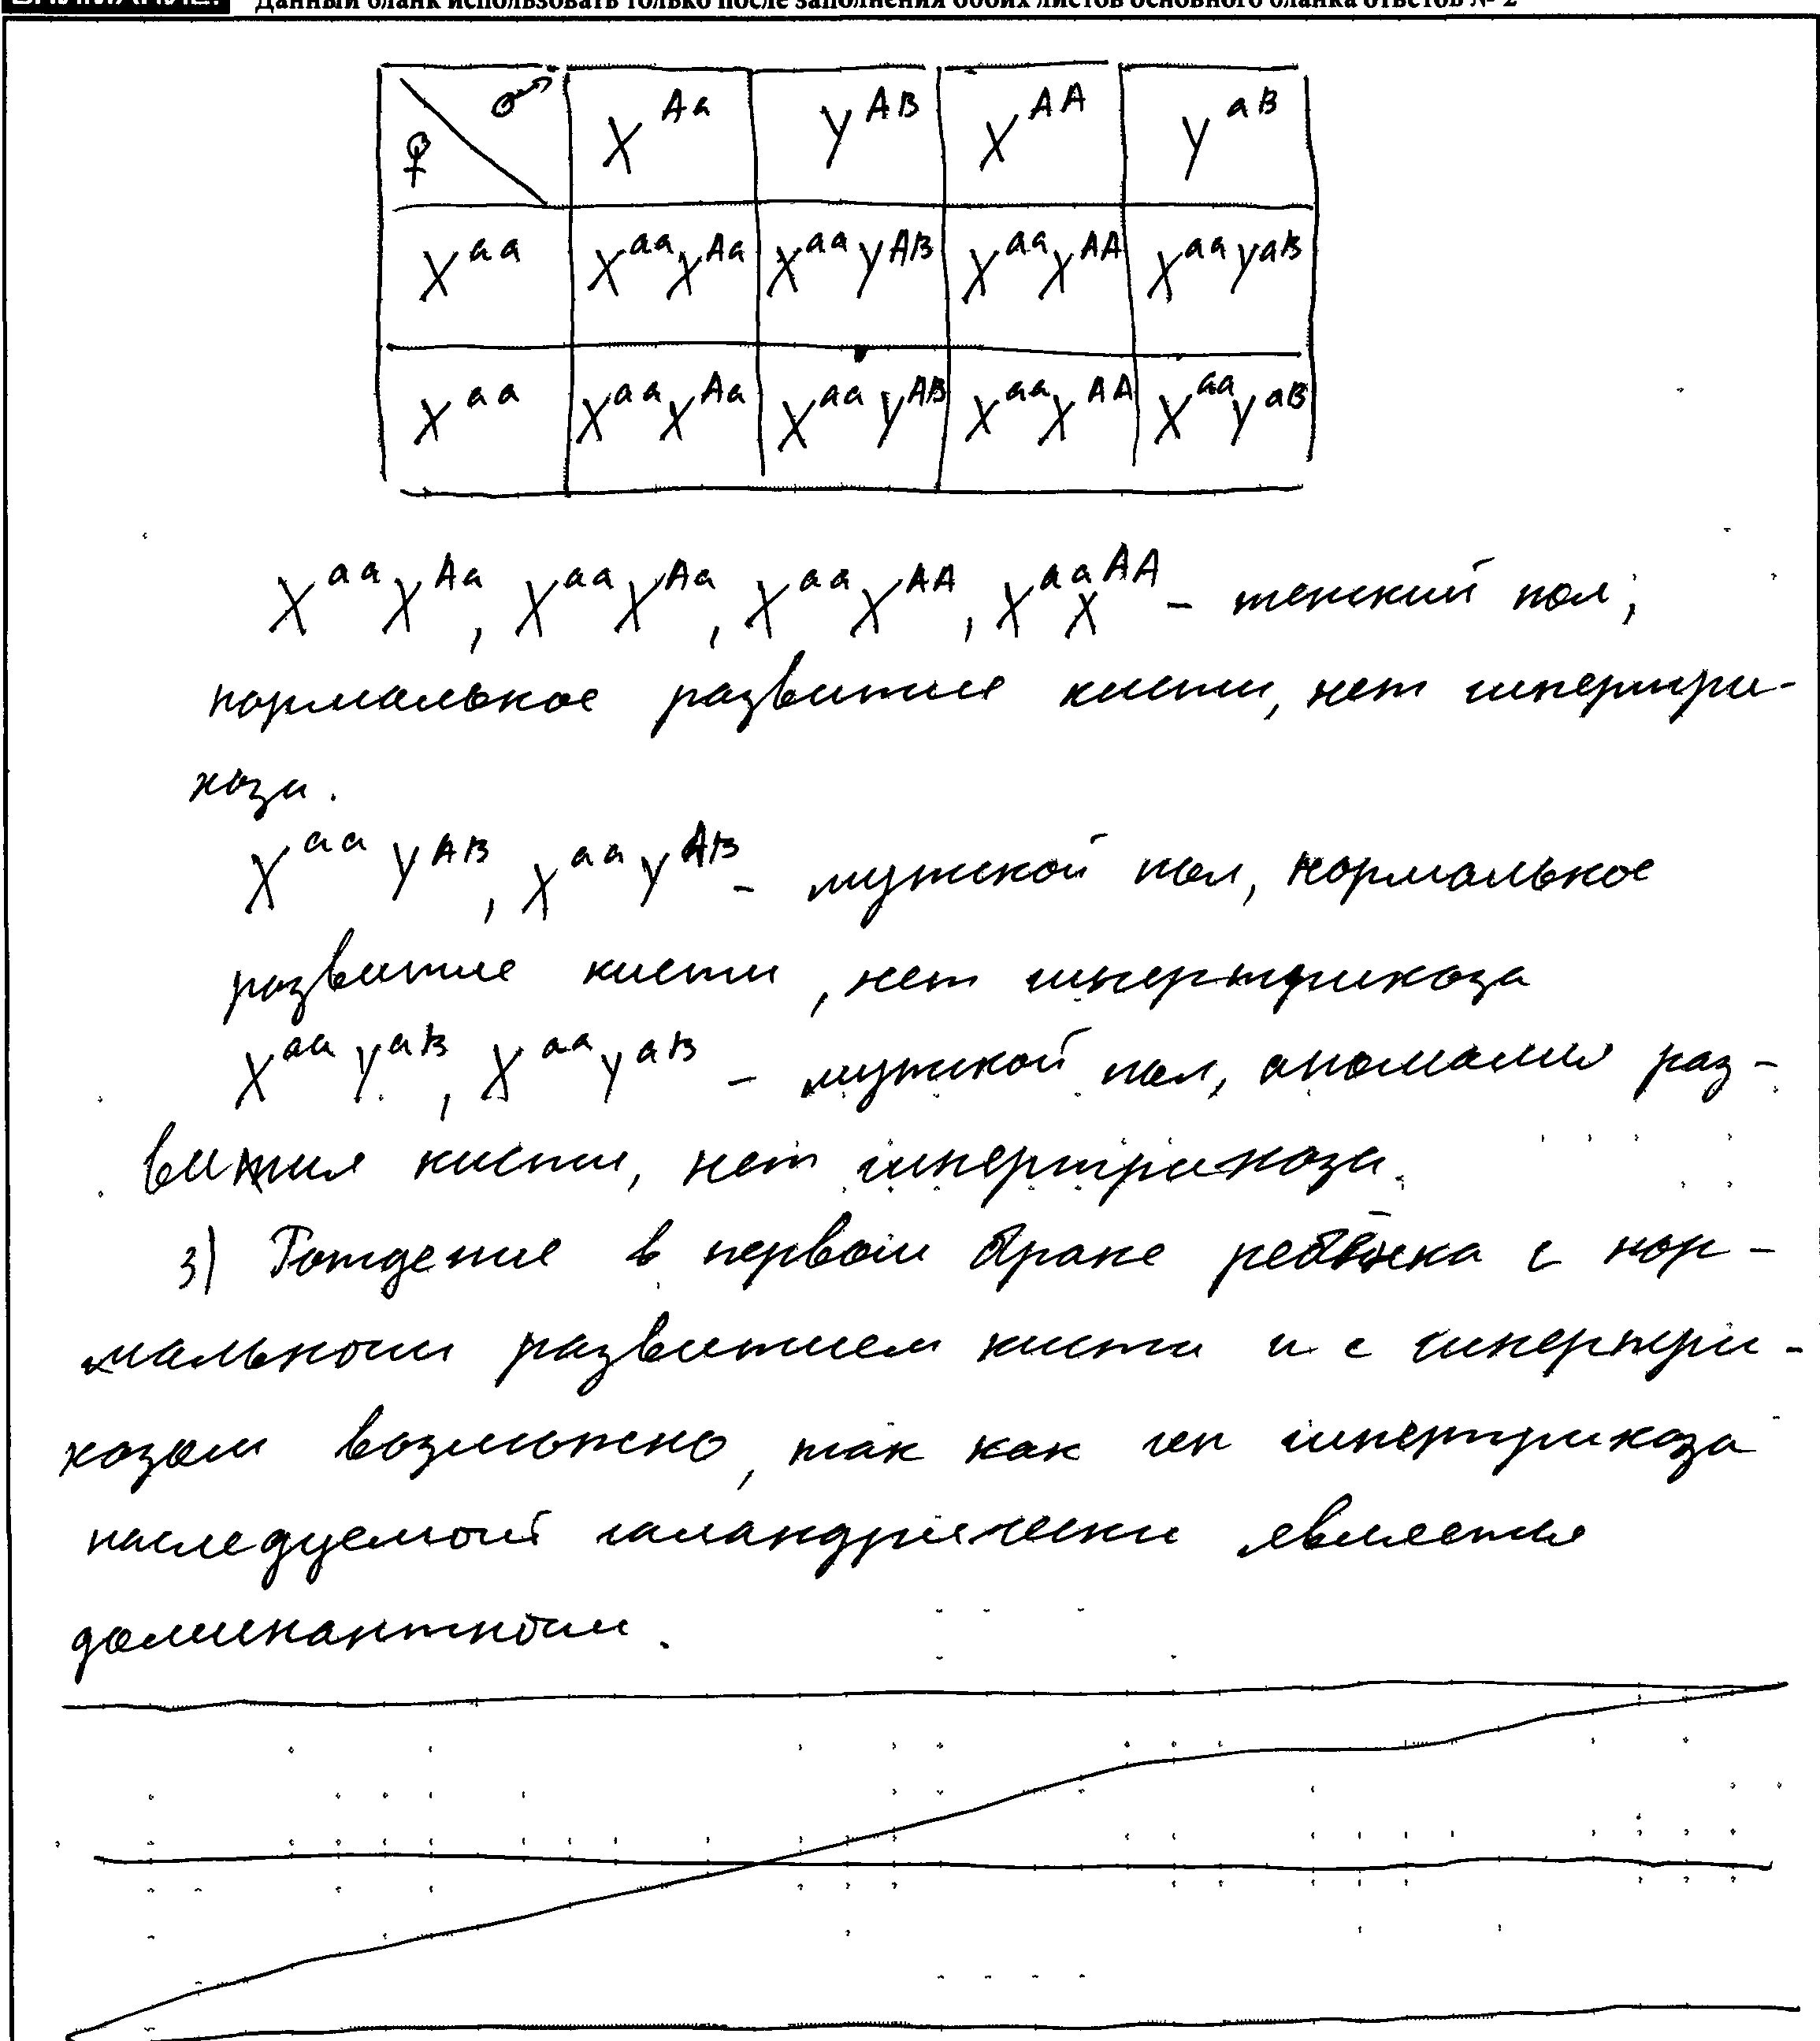 Данный бланк использовать только после заполнения обоих листов основного бланка ответов № 2
♀ ♂ X^Aa Y^AB X^AA Y^aB
X^aa X^aa X^Aa X^aa Y^AB X^aa X^AA X^aa Y^aB
X^aa X^aa X^Aa X^aa Y^AB X^aa X^AA X^aa Y^aB
X^aa X^Aa, X^aa X^Aa, X^aa X^AA, X^aa X^AA – женский пол;
нормальное развитие кисти, нет гипертри-
хоза.
X^aa Y^AB, X^aa Y^AB – мужской пол, нормальное
развитие кисти, нет гипертрихоза
X^aa Y^aB, X^aa Y^aB – мужской пол, аномалия раз-
вития кисти, нет гипертрихоза.
3) Рождение в первом браке ребёнка с нор-
мальном развитием кисти и с гипертри-
хозом возможно, так как ген гипертрихоза
наследуемой голандрически является
доминантном.